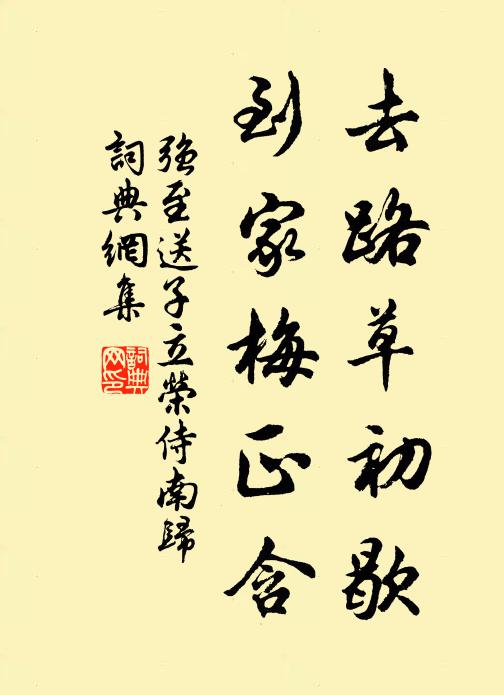 去路草初歇
到家梅正含
強至送子立榮侍南歸
詞典網集
詞典
网印